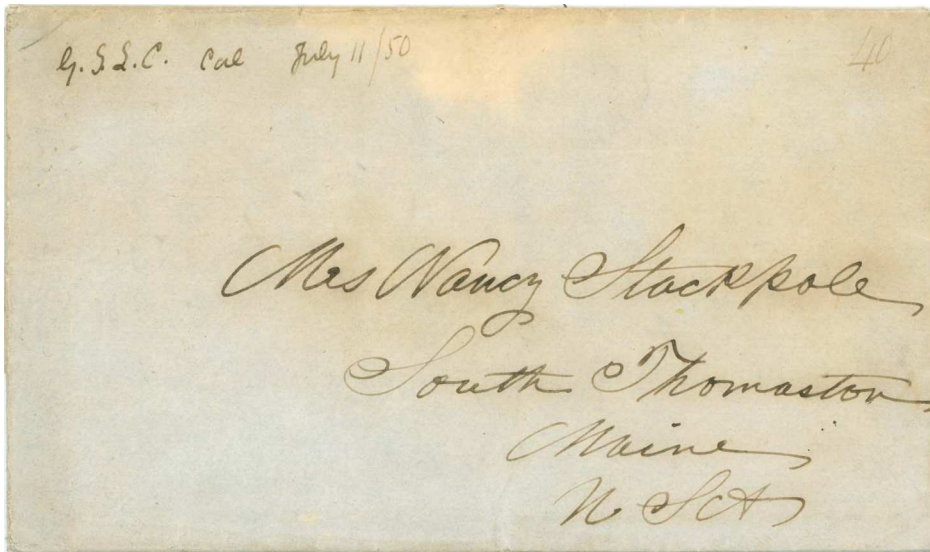 G.S.L.C. Cal July 11/50
40
Mrs Nancy Stackpole
South Thomaston
Maine
U S A